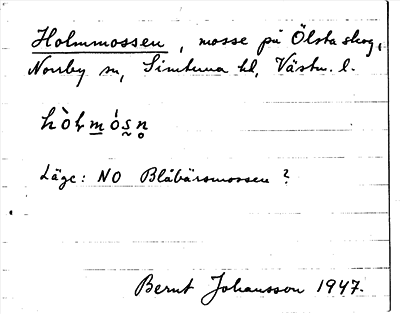 Holmmossen, mosse på Ölsta skog,
Norrby sn, Simtuna hd, Västm. l.
Läge: NO Blåbärsmossen?
Bernt Johansson 1947.